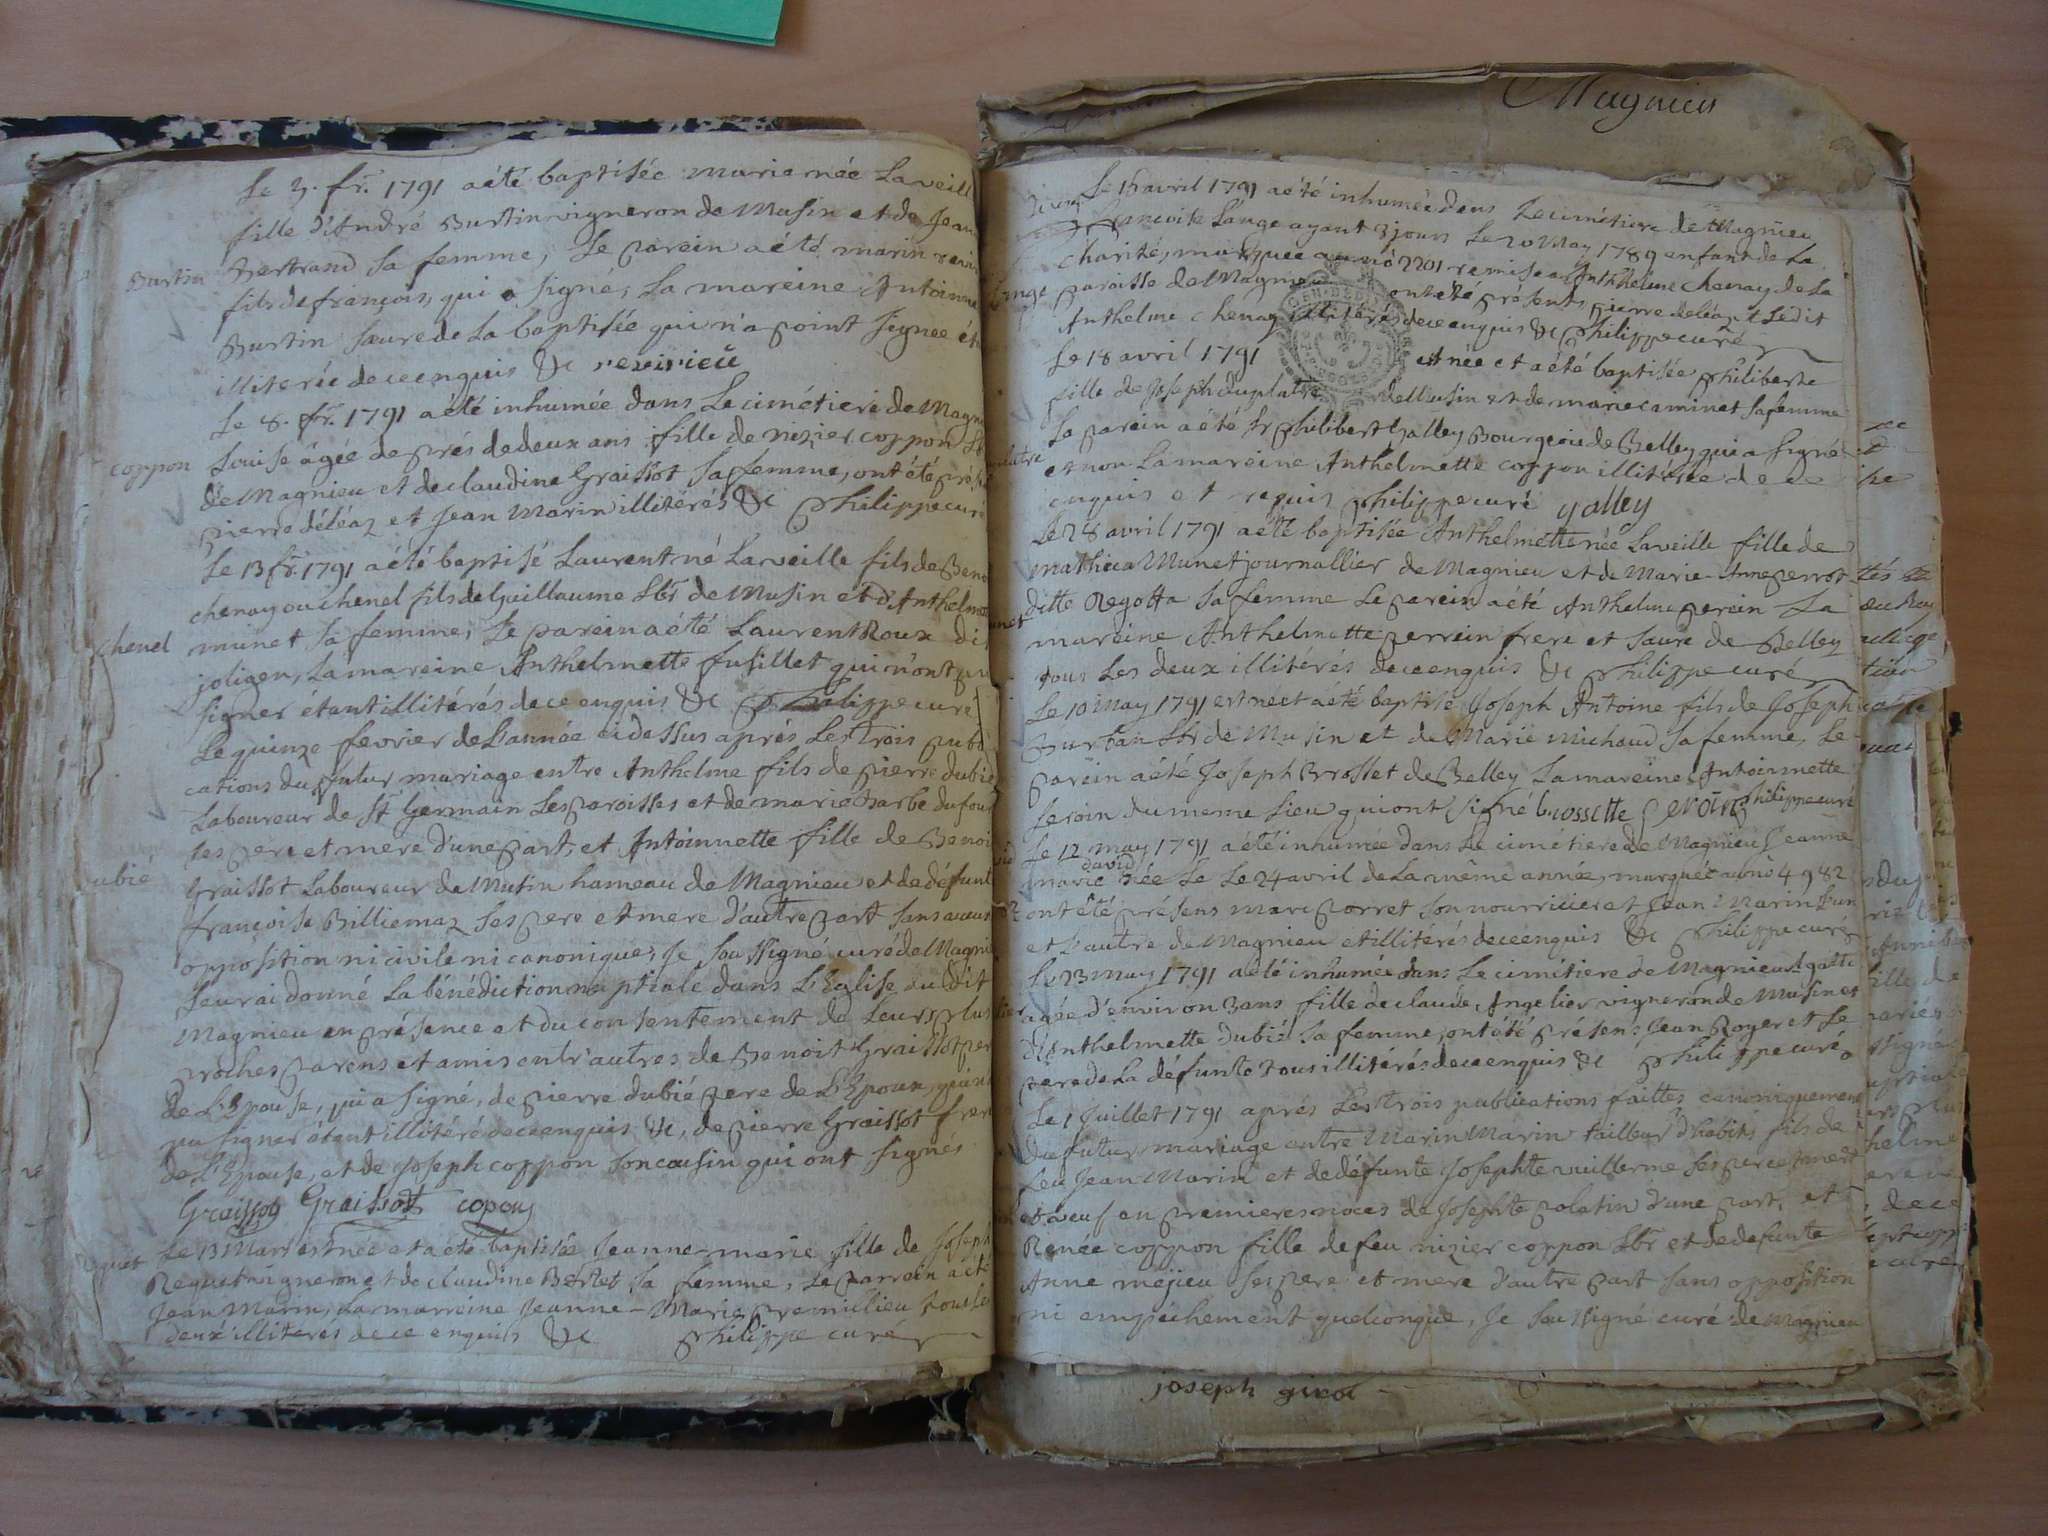 Le 3. fr. 1791 a été baptisée marie née Laveill
fille d'André Burtin vigneron de Musin et de Jean
Burtin
Bertrand sa femme, Le parein a été marin revir
fils de françois, qui a signé, La mareine Antoinne
Burtin sœure de La baptisée qui n'a point signee ét
illiterée de ce enquis &c revirieu
Le 8. fr. 1791 a été inhumée dans Le cimétiere de Magn
coppon
Louise âgée de prés de deux ans fille de nizier coppon Lb
de Magnieu et de claudine Graissot sa femme, ont été pré
pierre déléaz et Jean Marin illitérés &c Philippe curé
Le 13 fr. 1791 a été baptisé Laurent né Laveille fils de Beno
chenay ou chenel fils de Guillaume Lbr de Musin et d'Anthelm
chenel
munet sa femme, Le parein a été Laurent Roux di
joligen, La mareine Anthelmette fusillet qui n'ont pu
signer étant illitérés de ce enquis &c Philippe curé
Le quinze fevrier de L'année ci dessus aprés Les trois publi
cations du futur mariage entre Anthelme fils de pierre dubié
Laboureur de St Germain Les paroisses et de marie Barbe dufour
ses pere et mere d'une part, et Antoinnette fille de Benoi
ubié
Graissot Laboureur de Mutin hameau de Magnieu et de défunt
françoise Billiemaz ses pere et mere d'autre part sans aucun
opposition ni civile ni canonique, Je soussigné curé de Magni
Leur ai donné La bénédiction nuptiale dans L'Eglise du dit
Magnieu en présence et du consentement de Leurs plus
proches parens et amis entr'autres de Benoit Graissot per
de L'Epouse, qui a signé, de pierre dubié pere de L'Epoux, qui n
pu signer étant illitéré de ce enquis &c, de pierre Graissot frer
de L'Epouse, et de Joseph coppon son cousin qui ont signés
Graissot Graissot copon
Le 13 Mars est née et a été baptisée Jeanne-marie fille de Joseph
Reguet
Reguet vigneron et de claudine Bertet sa femme, Le parrein a été
Jean Marin, La marreine Jeanne-Marie premilieu tous Le
deux illitérés de ce enquis &c Philippe curé
Magnieu
Le 16 avril 1791 a été inhumée dans Le cimétiere de Magnieu
francoise L'ange ayant 3 jours Le 20 May 1789 enfant de La
charité, marquée au no 2201 remise a Anthhelme chenay de La
paroisse de Magnieu ont été présents pierre deléaz et Ledit
Anthelme chenay illitérés de ce enquis &c Philippe curé
Le 18 avril 1791 est née et a été baptisée philiberte
fille de Joseph duplatre de Musin et de marie caminet sa femme
Le parein a été Sr philibert yalley Bourgeois de Belley qui a signé
et non La mareine Anthelmette coppon illitérée de ce
enquis et requis philippe curé yalley
Le 28 avril 1791 a été baptisée Anthelmette née Laveille fille de
mathieu Munet journallier de Magnieu et de Marie-Anne perrot
ditte Regotta sa femme Le parein a été Anthelme perein La
mareine Anthelmette perrein frere et sœure de Belley
tous Les deux illitérés de ce enquis &c philippe curé
Le 10 May 1791 est né et a été baptisé Joseph Antoine fils de Joseph
Burtan Lbr de Musin et de Marie Michaud sa femme, Le
parein a été Joseph Brosset de Belley La mareine Antoinnette
seroin du meme Lieu qui ont signé brossette Philippe curé
Le 12 may 1791 a été inhumée dans Le cimétiere de Magnieu Jeanne
david
marie née Le Le 24 avril de La même année, marquée au no 4982
ont été présens marc porret son nourricier et Jean Marin L'un
et L'autre de Magnieu et illitérés de ce enquis &c Philippe curé
Le 23 may 1791 a été inhumée dans Le cimétiere de Magnieu Agatte
agée d'environ 3 ans fille de claude Angelier vigneron de Musin et
d'Anthelmette dubié sa femme, ont été présens Jean Royer et Le
pere de La défunte tous illitérés de ce enquis &c philippe curé
Le 1 Juillet 1791 aprés Les trois publications faittes canoniquement
du futur mariage entre Marin Marin tailleur d'habits fils de
feu Jean Marin et de défunte Josephte vuillerme ses pere et mere
et veuf en premieres noces de Josephte palatin d'une part, et
Renée coppon fille de feu nizier coppon Lbr et de defunte
Anne mejieu ses pere et mere d'autre part sans opposition
ni empéchement quelconque, Je soussigné curé de Magnieu
joseph girod